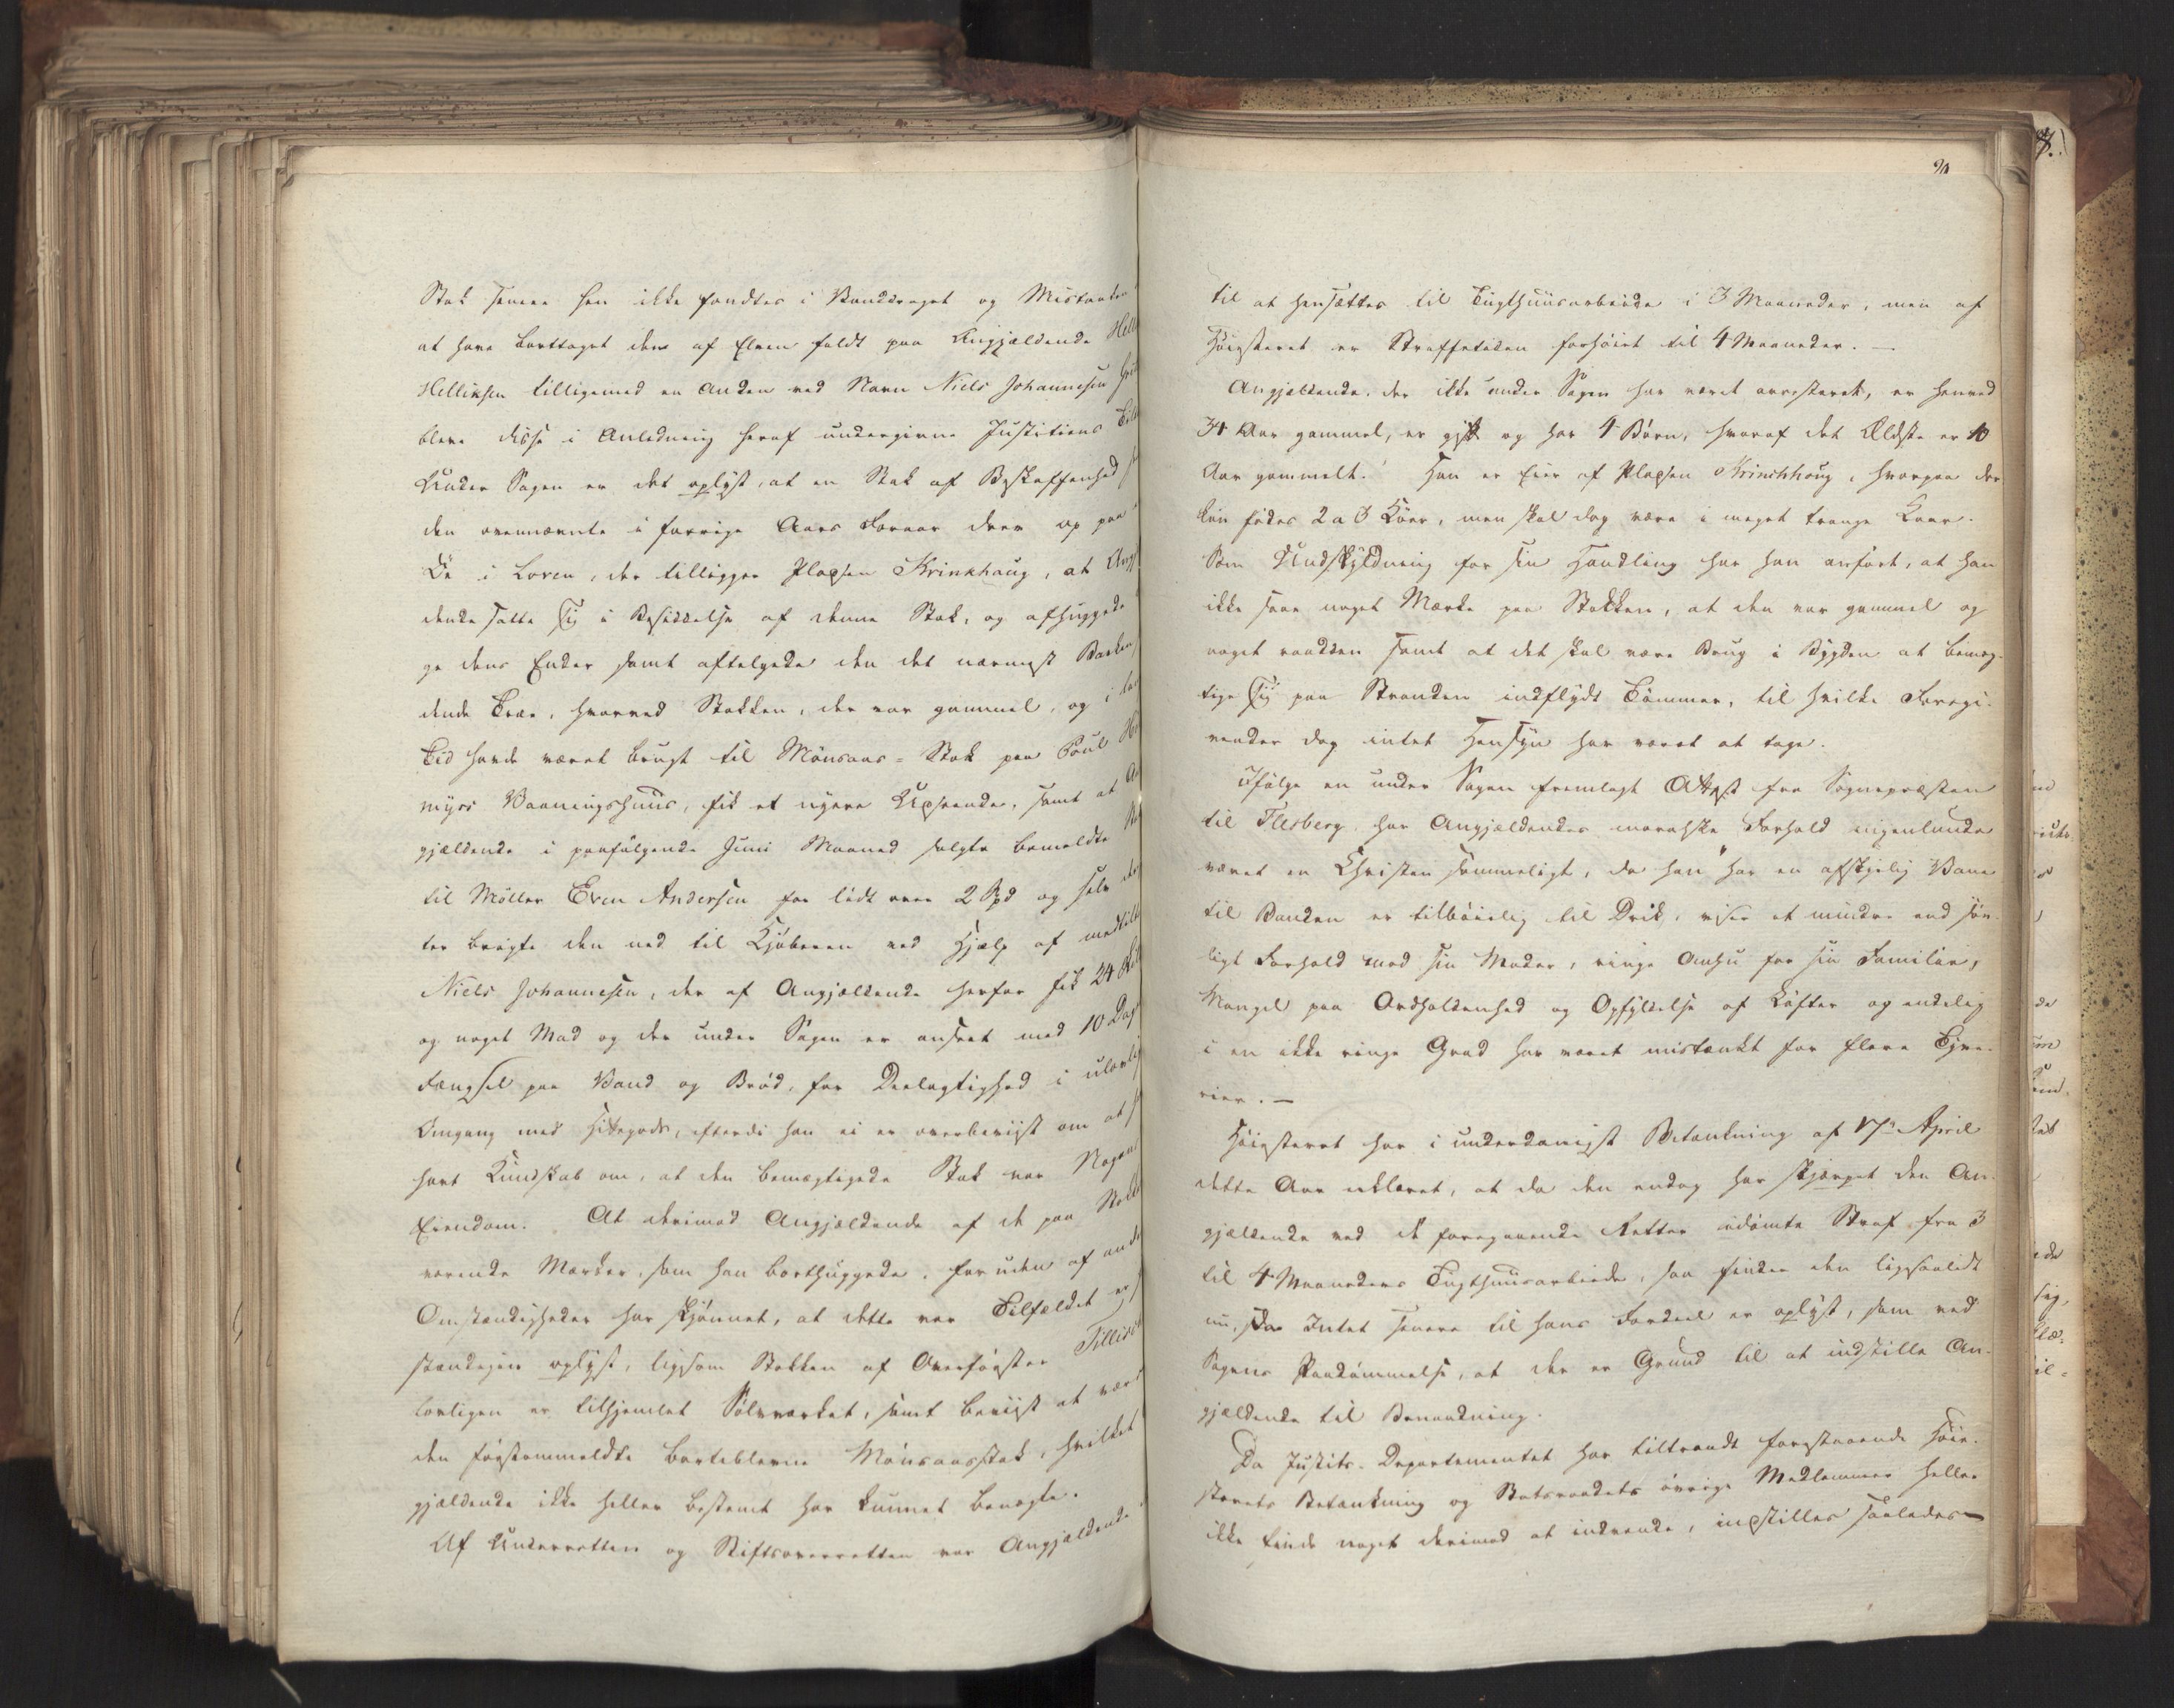 Stok senere hen ikke fandtes i Vanddraget og Mistanken
at have borttaget den af Elven faldt paa Angjældende Hell
Helliksen tilligemed en Anden ved Navn Niels Johannesen
bleve disse i Anledning heraf undergivne Justitiens
Under Sagen er det oplyst, at en Stok af Beskaffenhed
den ovennævnte i forrige Aars Foraar drev op paa
Øe i Loven, der tilligger Pladsen Krinkhaug, at Ang
dende satte sig i Besiddelse af denne Stok, og afhuggede
ge dens Ender samt aftelgede den det nærmest Barken
dende Træe, hvorved Stokken, der var gammel, og i
Tid havde været brugt til Mønsaas-Stok paa Poul
myrs Vaaningshuus, fik et nyere Udseende, samt at
gjældende i paafølgende Juni Maaned solgte bemeldte
til Møller Even Andersen for lidt over 2 Spd og selv
ter bragte den ned til Kjøberen ved Hjælp af
Niels Johannesen, der af Angjældende herfor fik 24
og noget Mad og der under Sagen er anseet med 10 Dag
Fængsel paa Vand og Brød, for Deelagtighed i ulovlig
Omgang med Hittegods, efterdi han ei er overbeviist om at
havt Kundskab om, at den bemægtigede Stok var Nogens
Eiendom. At derimod Angjældende af de paa Stokk
værende Mærker, som han borthuggede, foruden af and
Omstændigheder har skjønnet, at dette var Tilfældet er
stændigen oplyst, ligesom Stokken af Overførster Tillisch
lovligen er tilhjemlet Sølvværket, samt beviist at være
den førstommeldte bortblevne Mønsaasstok, hvilket
gjældende ikke heller bestemt har kunnet benægte.
Af Underretten og Stiftsoverretten var Angjældende
20
til at hensættes til Tugthuusarbeide i 3 Maaneder, men af
Høiesteret er Straffetiden forhøiet til 4 Maaneder. —
Angjældende, der ikke under Sagen har været arresteret, er henved
34 Aar gammel, er gift og har 4 Børn, hvoraf det Ældste er 10
Aar gammelt. Han er Eier af Pladsen Krinchhoug, hvorpaa der
kun fødes 2 a 3 Køer, men skal dog være i meget trange Kaar.
Som Undskyldning for sin Handling har han anført, at han
ikke saae noget Mærke paa Stokken, at den var gammel og
noget raadden samt at det skal være Brug i Bygden at bemæg-
tige sig paa Stranden indflydt Tømmer, til hvilke Foregi-
vender dog intet Hensyn har været at tage.
Ifølge en under Sagen fremlagt Attest fra Sognepræsten
til Flesberg, har Angjældendes moralske Forhold ingenlunde
været en Christen sømmeligt, da han "har en afskyelig Vane
til Banden er tilbøielig til Drik, viser et mindre end søn-
ligt Forhold mod sin Moder, ringe Omhu for sin Familie,
Mangel paa Ordholdenhed og Opfyldelse af Løfter og endelig
i en ikke ringe Grad har været mistænkt for flere Tyve-
rier. —
Høiesteret har i underdanigst Betænkning af 17de April
dette Aar erklæret, at da den endog har skjærpet den An-
gjældende ved de foregaaende Retter idømte Straf fra 3
til 4 Maaneders Tugthuusarbeide, saa finder den ligesaalidt
nu, da Intet senere til hans Fordeel er oplyst, som ved
Sagens Paadømmelse, at der er Grund til at indstille An-
gjældende til Benaadning.
Da Justits-Departementet har tiltraadt foranstaaende Høie-
sterets Betænkning og Statsraadets øvrige Medlemmer heller
ikke finde noget derimod at indvende, indstilles saaledes —